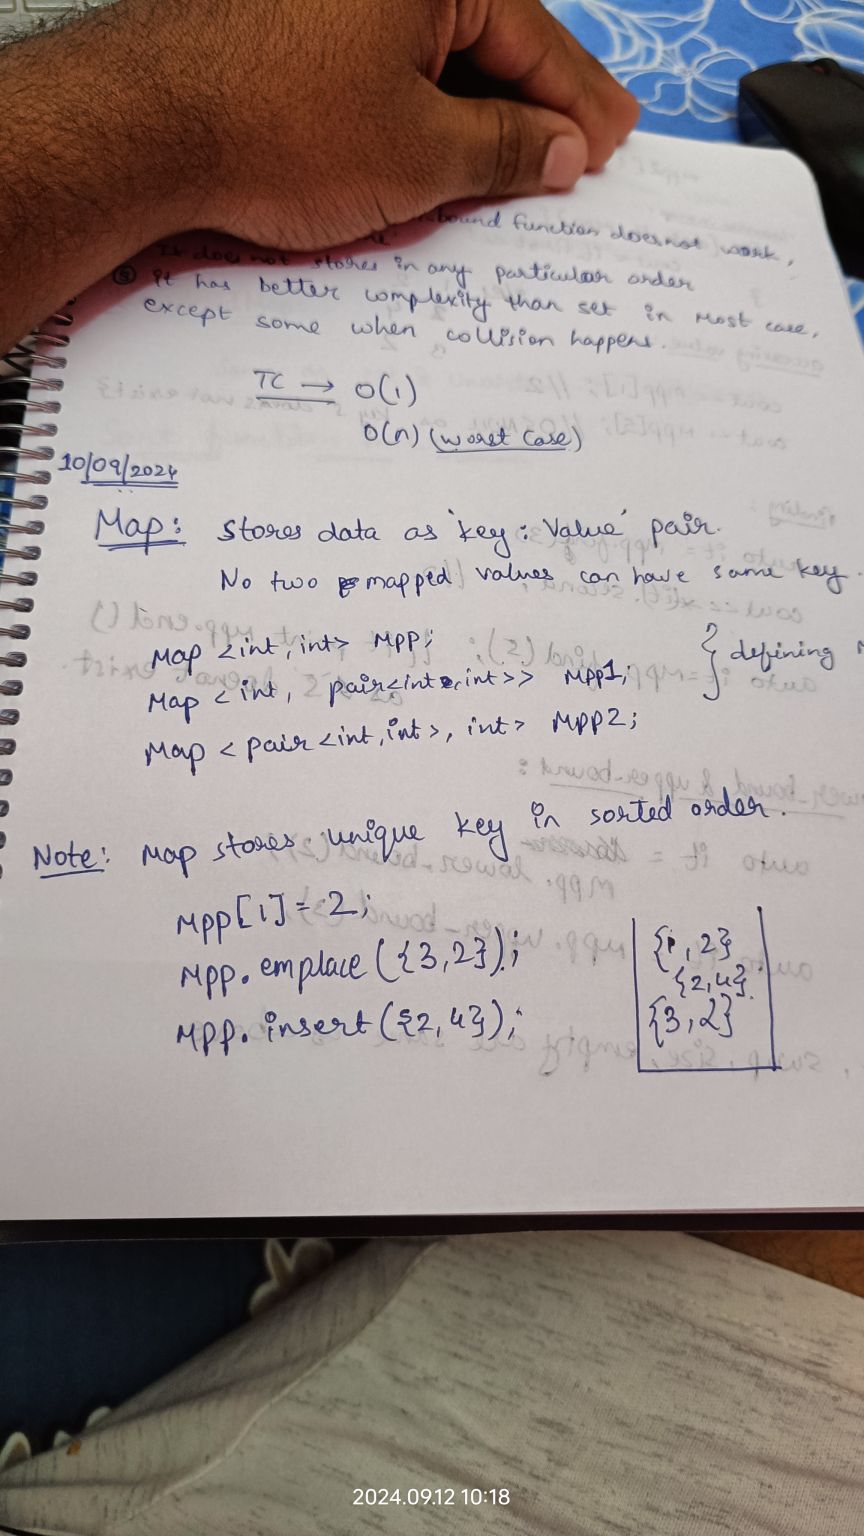 bound function does not work,
It does not stores in any particular order
③ it has better complexity than set in most case,
except some when collision happens.
TC → O(1)
O(n) (worst case)
10/09/2024
Map: stores data as 'key : value' pair.
No two mapped values can have same key.
Map <int, int> Mpp;
Map <int, pair<int, int>> Mpp1;
} defining
Map <pair<int,int>, int> Mpp2;
Note: Map stores unique key in sorted order.
Mpp[1] = 2;
Mpp.emplace({3,2});
Mpp.insert({2,4});
{1,2}
{2,4}
{3,2}
2024.09.12 10:18